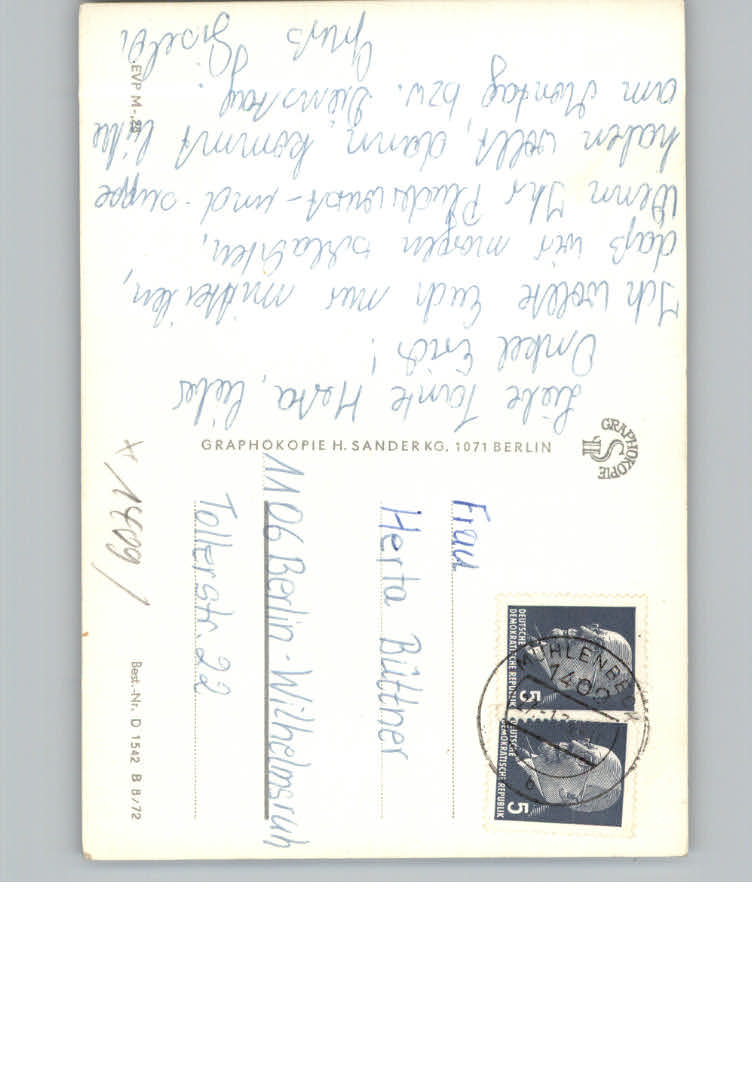 Liebe Tante Herta, liebes
Onkel Erich!
Ich wollte Euch nur mitteilen,
daß wir morgen schlachten,
Wenn Ihr
-und-suppe
haben wollt, dann, kommt bitte
am Montag, bzw. Dienstag.
Gruß
EVP M-,28
GRAPHOKOPIE H. SANDER KG, 1071 BERLIN
GRAPHOKOPIE
HS
Frau
Herta Büttner
1106 Berlin-Wilhelmsruh
Tollerstr. 22
* 1409/
Best.-Nr. D 1542 B 8/72
DEUTSCHE
DEMOKRATISCHE REPUBLIK
5
DEUTSCHE
DEMOKRATISCHE REPUBLIK
5
MÜHLENBECK
1409